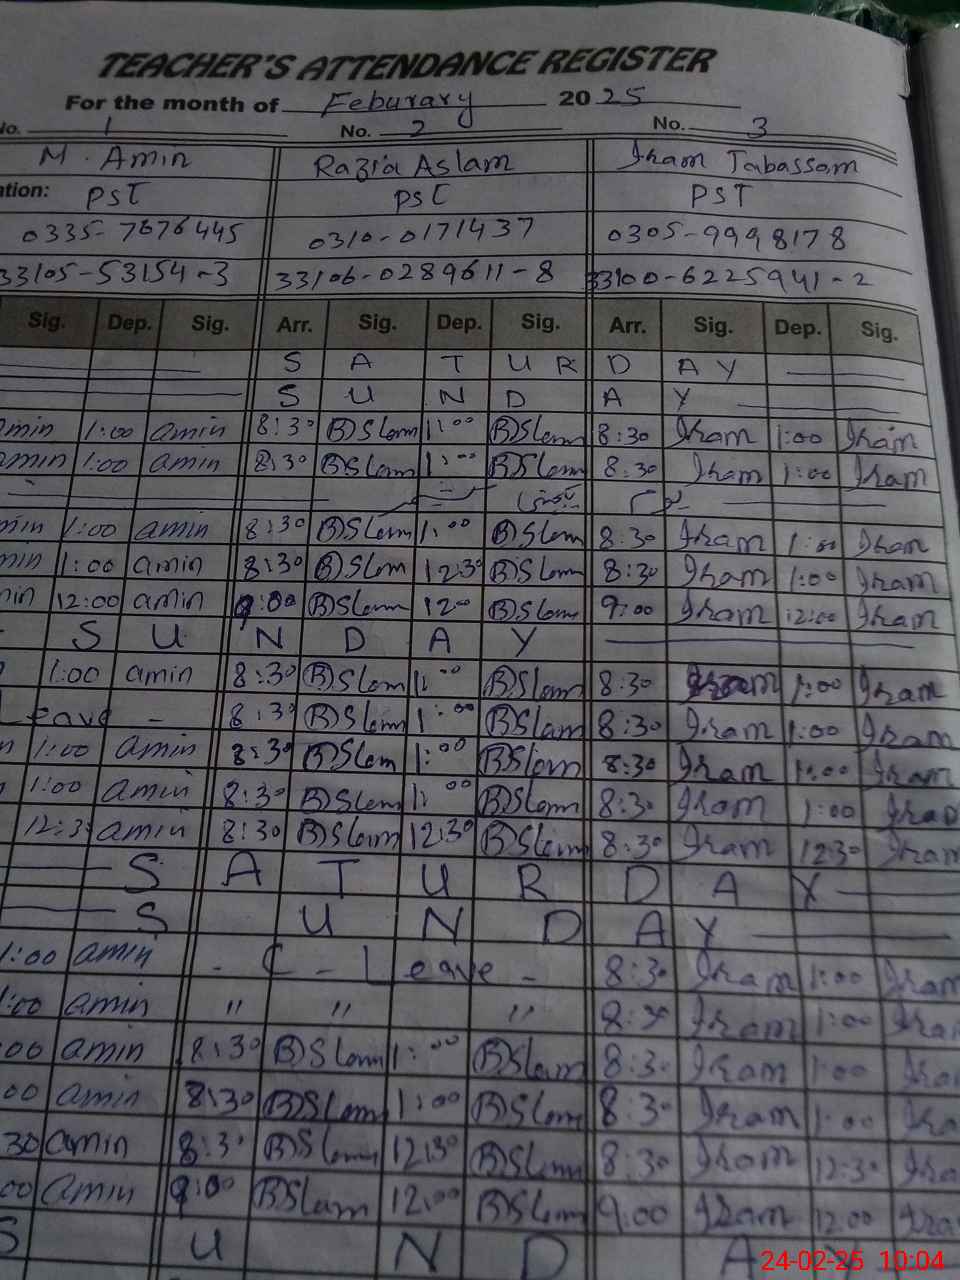 TEACHER'S ATTENDANCE REGISTER
For the month of Feburary 2025
No. 1 No. 2 No. 3
M. Amin Razia Aslam Iram Tabassam
PST PST PST
0335-7676445 0310-0171437 0305-9998178
33105-53154-3 33106-0289611-8 33100-6225941-2
Sig. Dep. Sig. Arr. Sig. Dep. Sig. Arr. Sig. Dep. Sig.
SATURDAY
SUNDAY
amin 1:00 amin 8:30 Aslam 1:00 Aslam 8:30 Iram 1:00 Iram
amin 1:00 amin 8:30 Aslam 1:00 Aslam 8:30 Iram 1:00 Iram
amin 1:00 amin 8:30 Aslam 1:00 Aslam 8:30 Iram 1:00 Iram
min 1:00 amin 8:30 Aslam 12:30 Aslam 8:30 Iram 1:00 Iram
min 12:00 amin 9:00 Aslam 12:00 Aslam 9:00 Iram 12:00 Iram
SUNDAY
1:00 amin 8:30 Aslam 1:00 Aslam 8:30 Iram 1:00 Iram
Leave - 8:30 Aslam 1:00 Aslam 8:30 Iram 1:00 Iram
1:00 amin 8:30 Aslam 1:00 Aslam 8:30 Iram 1:00 Iram
1:00 amin 8:30 Aslam 1:00 Aslam 8:30 Iram 1:00 Iram
12:30 amin 8:30 Aslam 12:30 Aslam 8:30 Iram 12:30 Iram
SATURDAY
SUNDAY
1:00 amin - C - Leave - 8:30 Iram 1:00 Iram
1:00 amin " " " 8:30 Iram 1:00 Iram
00 amin 8:30 Aslam 1:00 Aslam 8:30 Iram 1:00 Iram
00 amin 8:30 Aslam 1:00 Aslam 8:30 Iram 1:00 Iram
30 amin 8:30 Aslam 12:30 Aslam 8:30 Iram 12:30 Iram
00 amin 9:00 Aslam 12:00 Aslam 9:00 Iram 12:00 Iram
SUNDAY
24-02-25 10:04